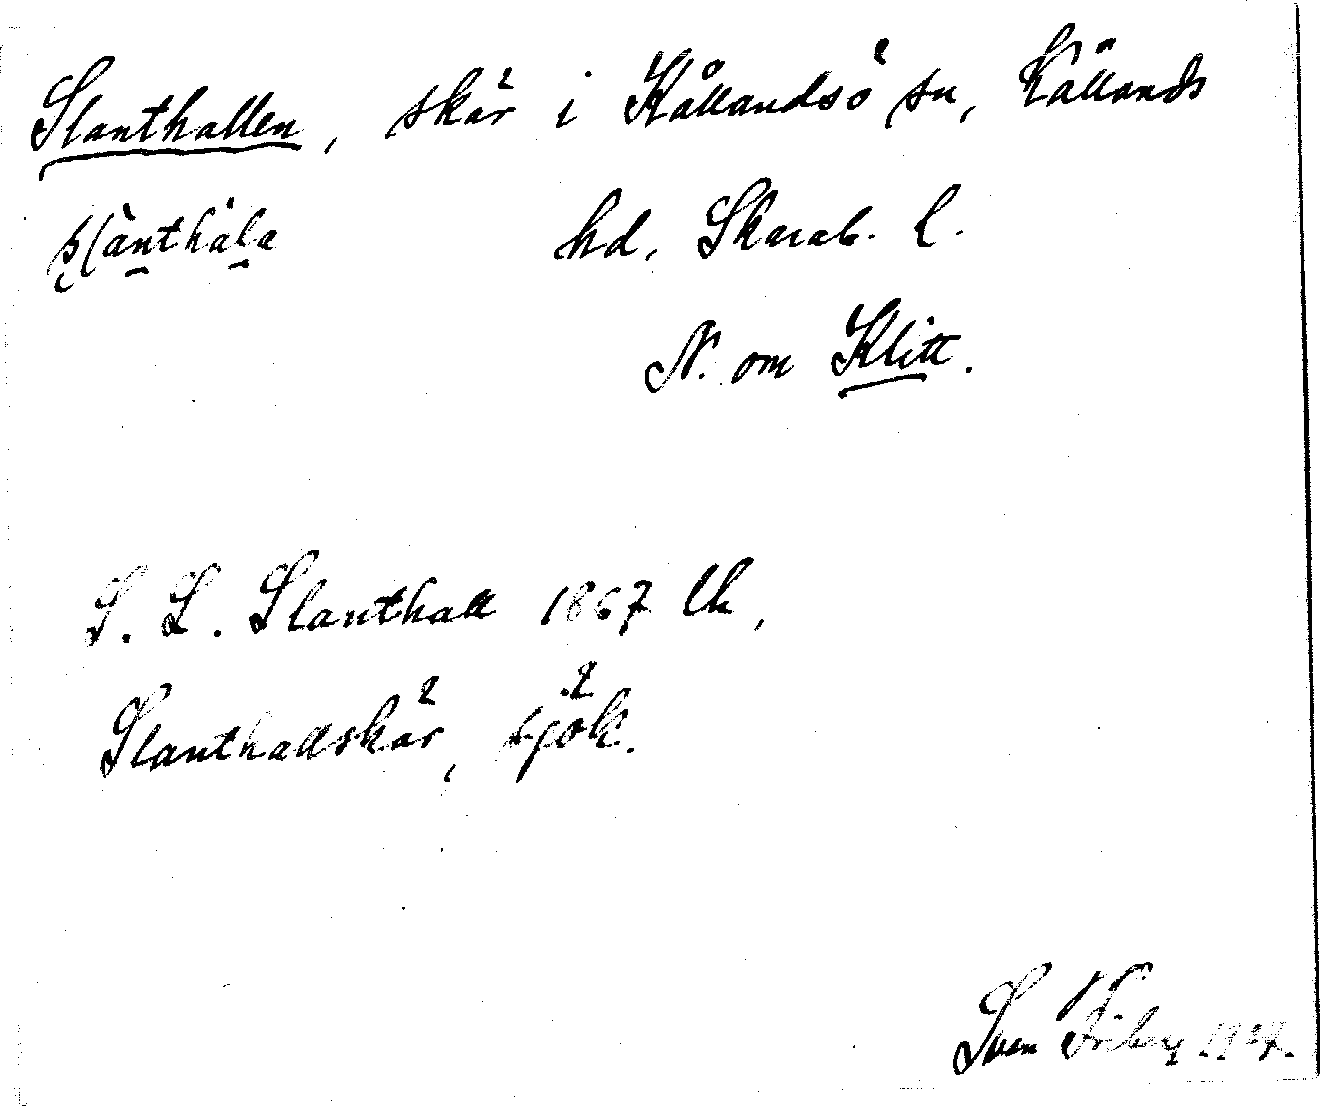 Slanthallen, skär i Kållandsö sn, Kållands
slànthála hd. Skarab. l.
N. om Klitt.
S. L. Slanthall 1867 Uk,
Slanthallskär, sjök.
Sven Friberg 1927.